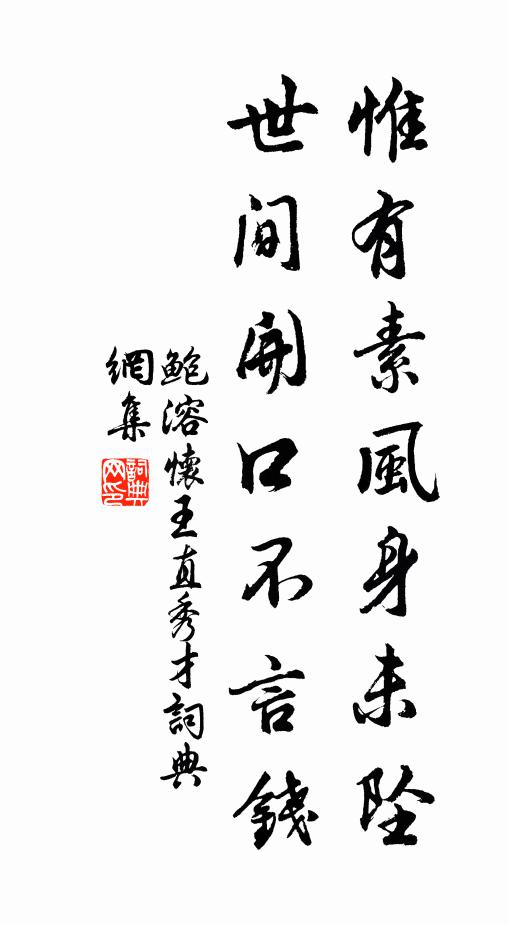 惟有素風身未墜
世间開口不言錢
鲍溶懷王直秀才詞典
網集
詞典
网印